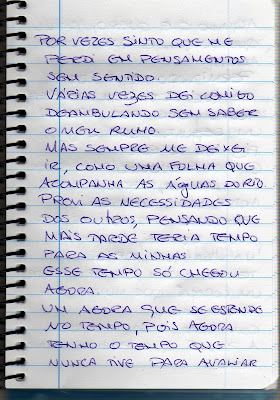 POR VEZES SINTO QUE ME
PERDI EM PENSAMENTOS
SEM SENTIDO.
VÁRIAS VEZES DEI COMIGO
DEAMBULANDO SEM SABER
O MEU RUMO.
MAS SEMPRE ME DEIXEI
IR, COMO UMA FOLHA QUE
ACOMPANHA AS ÁGUAS DO RIO.
PROVI AS NECESSIDADES
DOS OUTROS, PENSANDO QUE
MAIS TARDE TERIA TEMPO
PARA AS MINHAS
ESSE TEMPO SÓ CHEGOU
AGORA.
UM AGORA QUE SE ESTENDE
NO TEMPO, POIS AGORA
TENHO O TEMPO QUE
NUNCA TIVE PARA AVALIAR